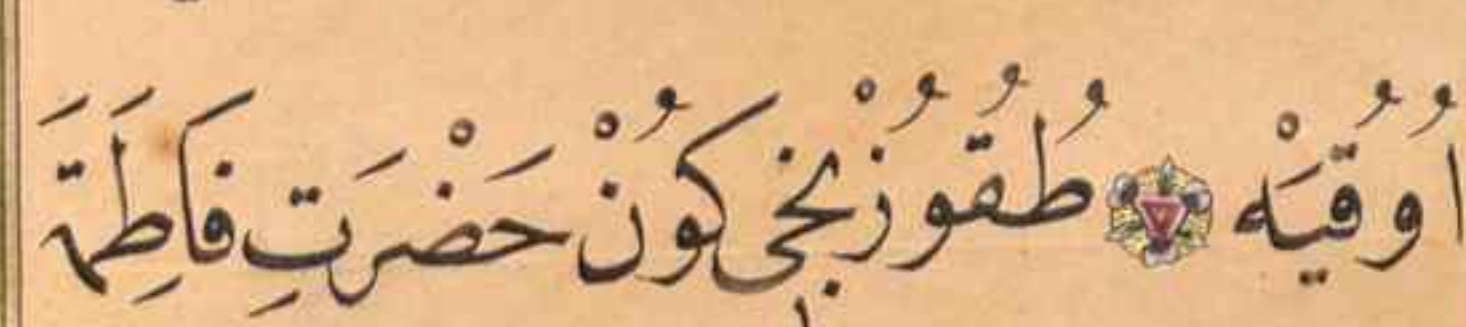 اُوُقیَهْ طُقُوُزْنجی كُونْ حَضْرَتِ فَاطِمَهَ